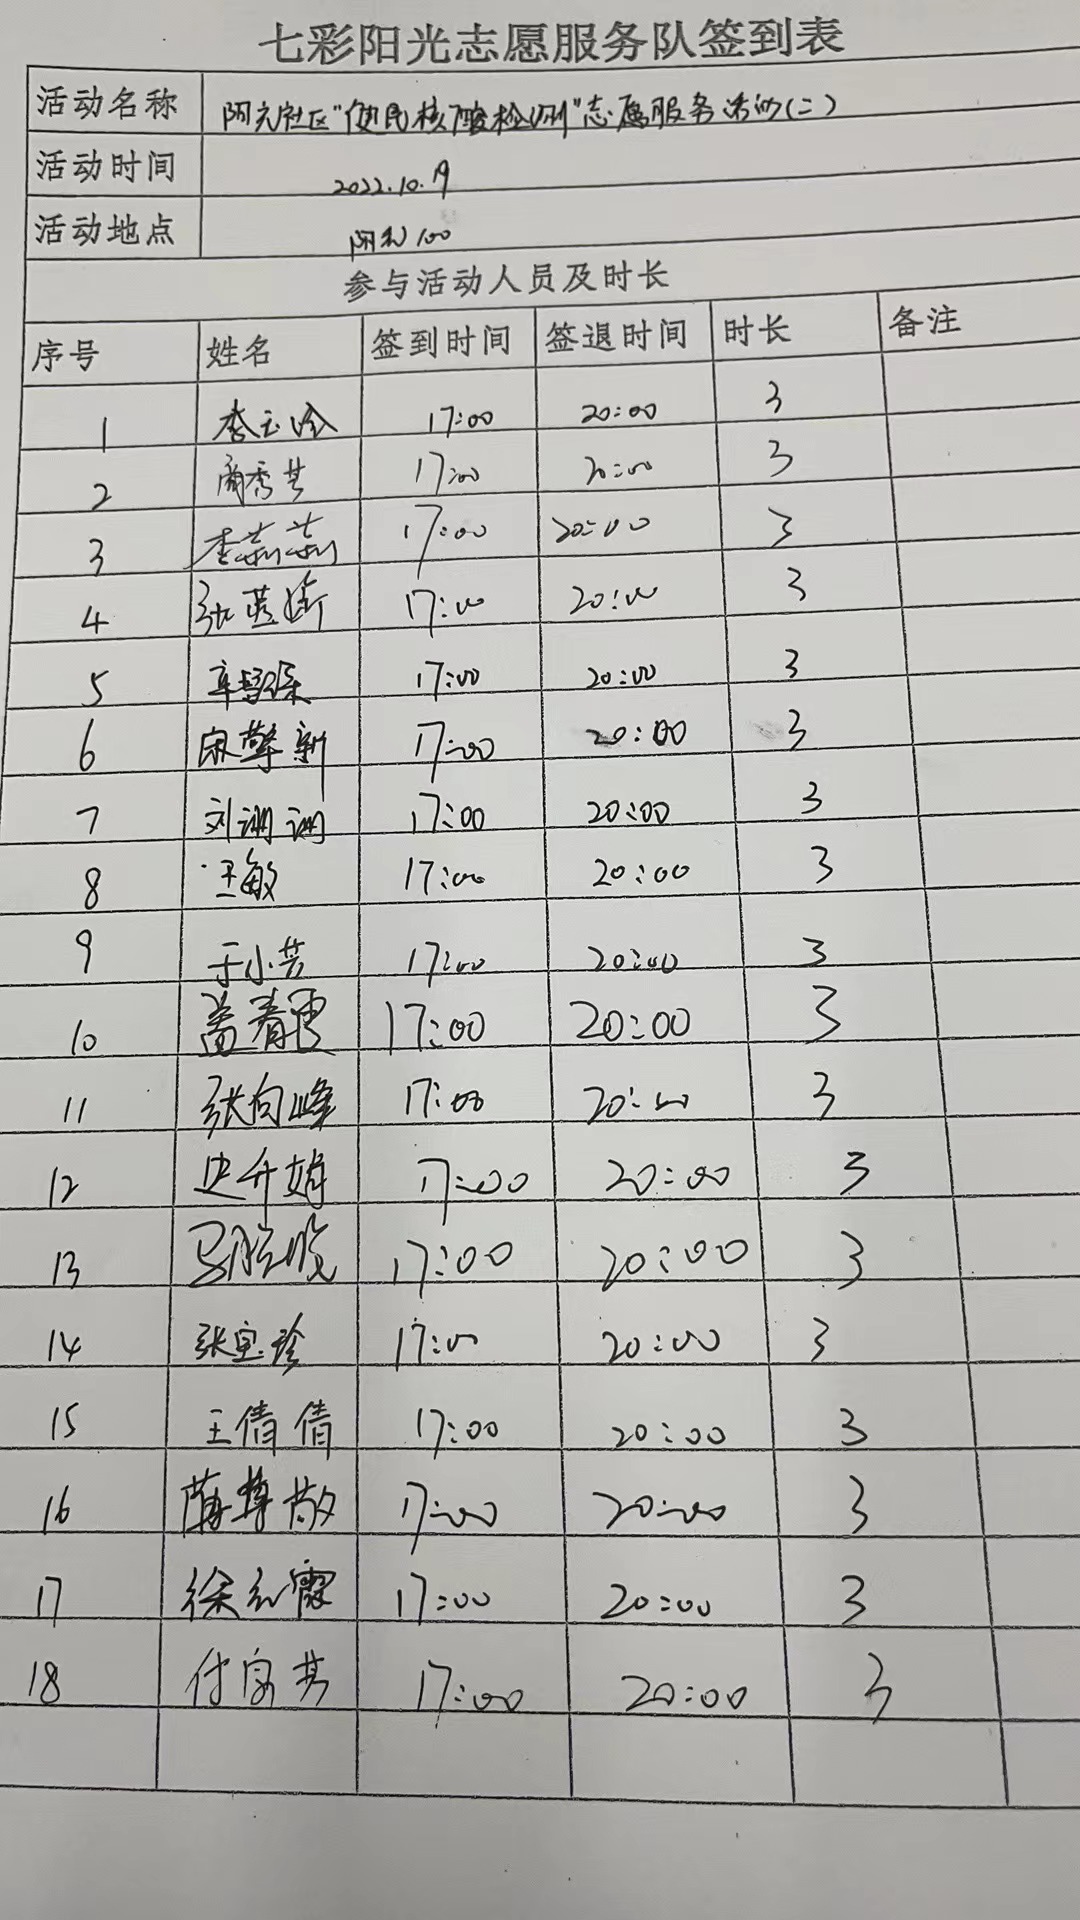 七彩阳光志愿服务队签到表
活动名称 阳光社区"便民核酸检测"志愿服务活动(二)
活动时间 2022.10.19
活动地点 阳光100
参与活动人员及时长
序号 姓名 签到时间 签退时间 时长 备注
1 李玉玲 17:00 20:00 3
2 商秀芳 17:00 20:00 3
3 李莉莉 17:00 20:00 3
4 17:00 20:00 3
5 17:00 20:00 3
6 宋擎新 17:00 20:00 3
7 刘 17:00 20:00 3
8 王敏 17:00 20:00 3
9 于小芸 17:00 20:00 3
10 盖春雪 17:00 20:00 3
11 张向峰 17:00 20:00 3
12 史升娟 17:00 20:00 3
13 马 17:00 20:00 3
14 张宝珍 17:00 20:00 3
15 王倩倩 17:00 20:00 3
16 17:00 20:00 3
17 徐红霞 17:00 20:00 3
18 付 17:00 20:00 3